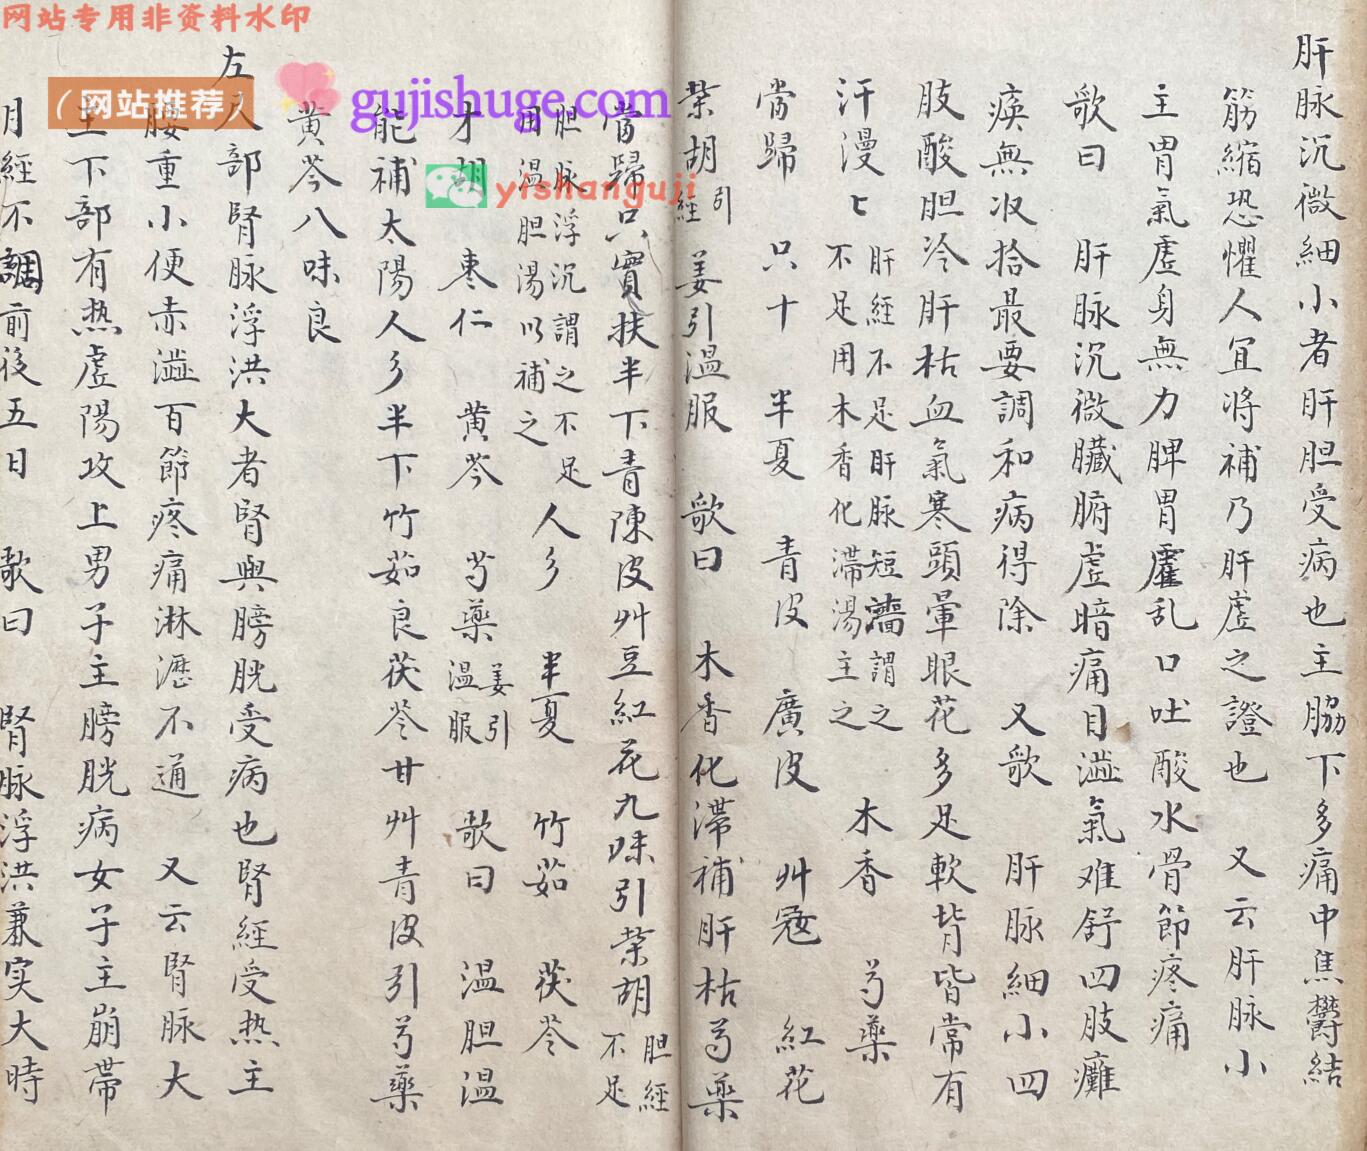 肝脉沉微細小者肝胆受病也主脇下多痛中焦欝結
筋縮恐懼人冝將補乃肝虚之證也 又云肝脉小
主胃氣虚身無力脾胃霍乱口吐酸水骨節疼痛
歌曰 肝脉沉微臟腑虚暗痛目澁氣难舒四肢癱
痪無收拾最要調和病得除 又歌 肝脉細小四
肢酸胆冷肝枯血氣寒頭暈眼花多足軟背皆常有
汗漫七 肝経不足肝脉短濇謂之
不足用木香化滞湯主之 木香 芍藥
當歸 只十 半夏 青皮 廣皮 艸寇 紅花
柴胡 引
經 姜引温服 歌曰 木香化滞補肝枯芍藥
當歸只實扶半下青陳皮艸豆紅花九味引柴胡 胆經
不足
胆脉浮沉謂之不足
用温胆湯以補之 人参 半夏 竹茹 茯苓
才胡 枣仁 黄芩 芍藥 姜引
温服 歌曰 温胆温
能補太陽人参半下竹茹良茯苓甘艸青皮引芍藥
黄芩八味良
左尺部腎脉浮洪大者腎與膀胱受病也腎經受热主
腰重小便赤澁百節疼痛淋瀝不通 又云腎脉大
主下部有热虚陽攻上男子主膀胱病女子主崩帯
月經不調前後五日 歌曰 腎脉浮洪兼实大時
网站专用非资料水印
(网站推荐)
gujishuge.com
yishanguji